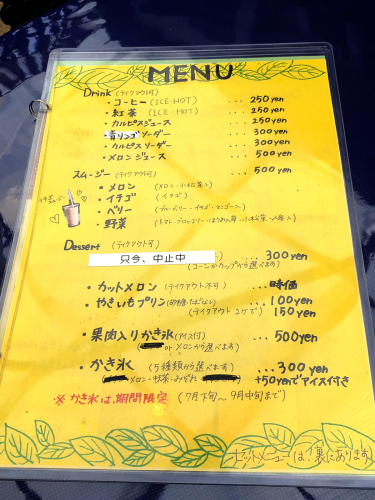 MENU
Drink (テイクアウト可)
・コーヒー (ICE・HOT) ... 250yen
・紅茶 (ICE・HOT) ... 250yen
・カルピスジュース ... 250yen
・青リンゴソーダー ... 300yen
・カルピスソーダー ... 300yen
・メロンジュース ... 500yen
スムージー (テイクアウト可) ... 500yen
・メロン (メロン・小松菜入)
・イチゴ (イチゴ)
・ベリー (ブルーベリー・イチゴ・マンゴー入)
・野菜
Dessert (テイクアウト可)
只今、中止中 ... 300yen
(コーンかカップから選べます)
・カットメロン (テイクアウト不可) ... 時価
・やきいもプリン ... 100yen
(テイクアウト 2ケで) 150yen
・果肉入りかき氷 (アイス付) ... 500yen
or メロンから選べます)
・かき氷 (5種類から選べます) ... 300yen
・メロン・抹茶・みぞれ +50yenでアイス付き
※ かき氷は、期間限定 (7月下旬～9月中旬まで)
セットメニューは、裏にあります